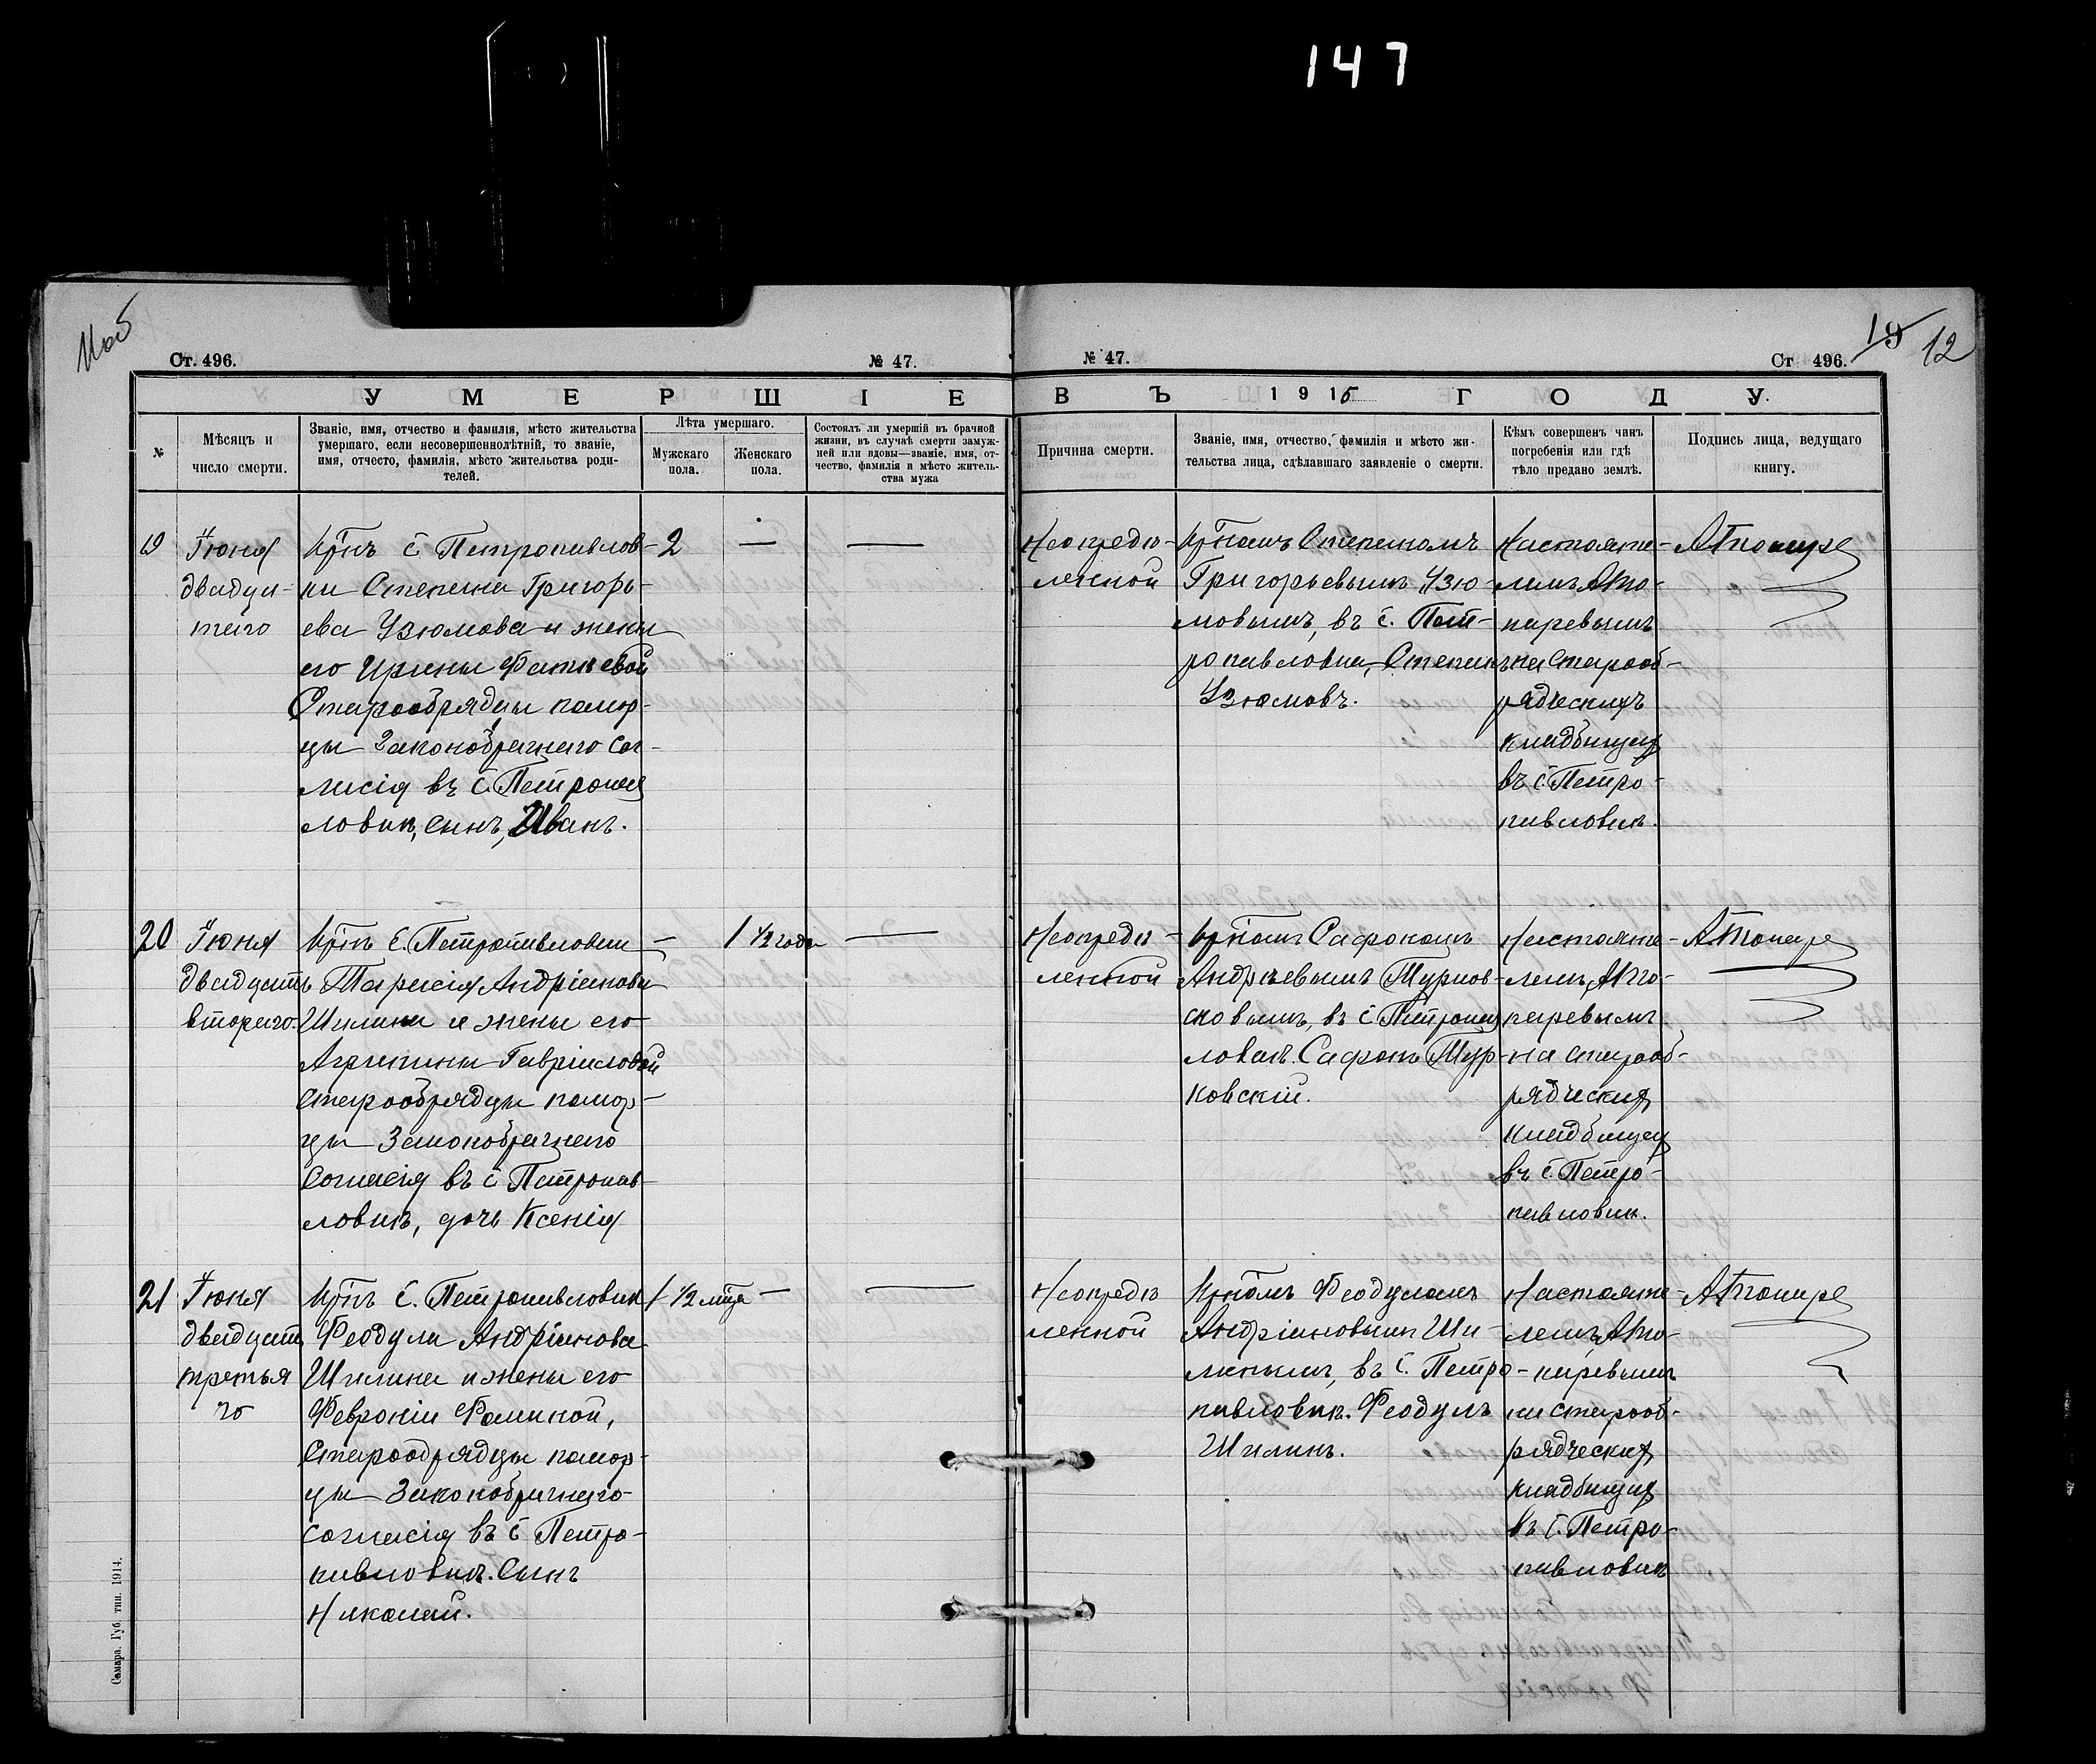 147
Ст. 496.
№ 47.
№ 47.
Ст 496.
19
12
УМЕРШІЕ
ВЪ 1915 ГОДУ.
№
Мѣсяцъ и
число смерти.
Званіе, имя, отчество и фамилія, мѣсто жительства
умершаго, если несовершеннолѣтній, то званіе,
имя, отчесто, фамилія, мѣсто жительства роди-
телей.
Лѣта умершаго.
Мужскаго
пола.
Женскаго
пола.
Состоялъ ли умершій въ брачной
жизни, въ случаѣ смерти замуж-
ней или вдовы—званіе, имя, от-
чество, фамилія и мѣсто житель-
ства мужа
Причина смерти.
Званіе, имя, отчество, фамилія и мѣсто жи-
тельства лица, сдѣлавшаго заявленіе о смерти.
Кѣмъ совершенъ чинъ
погребенія или гдѣ
тѣло предано землѣ.
Подпись лица, ведущаго
книгу.
19
Іюня
двадца-
таго
Крпнъ с. Петропавлов-
ки Степана Григорь-
ева Узюмова и жены
его Ирины
Старообрядцы помор-
цы Законобрачнаго сог-
ласія въ с. Петропав
ловкѣ, сынъ, Иванъ.
2
—
—
Неопредѣ-
ленной
Крпномъ Степаномъ
Григорьевымъ Узю-
мовымъ, въ с. Пет-
ропавловка, Степанъ
Узюмовъ.
Настояте-
лемъ
паревымъ
на Старооб-
рядческихъ
кладбищахъ
въ с. Петро-
павловкѣ.
20
Іюня
двадцать
второго.
Крпнъ с. Петропавловки
Тарасія Андріанова
Шилина и жены его
Агрипины Гавріиловой
старообрядцы помор-
цы Законобрачнаго
согласія въ с. Петропав-
ловкѣ, дочь Ксенія
—
1 1/2 года
—
Неопредѣ-
ленной
Крпномъ Сафономъ
Андрѣевымъ Мурков-
сковымъ, въ с. Петропав
ловкѣ. Сафонъ Мур-
ковскій.
Настояте-
лемъ
паревымъ
на старооб-
рядческихъ
кладбищахъ
въ с. Петро-
павловкѣ.
21
Іюня
двадцать
третья
го
Крпнъ с. Петропавловки
Феодула Андріанова
Шилина и жены его
Февроніи Фоминой,
Старообрядцы помор-
цы Законобрачнаго
согласія въ с. Петро-
павловкѣ. Сынъ
Николай.
1 1/2 мѣца
—
—
Неопредѣ
ленной
Крпномъ Феодуломъ
Андріановымъ Ши-
линымъ, въ с. Петро-
павловкѣ. Феодулъ
Шилинъ.
Настояте-
лемъ
паревымъ
на старооб-
рядческихъ
кладбищахъ
въ с. Петро-
павловкѣ
Самара. Губ. тип. 1914.